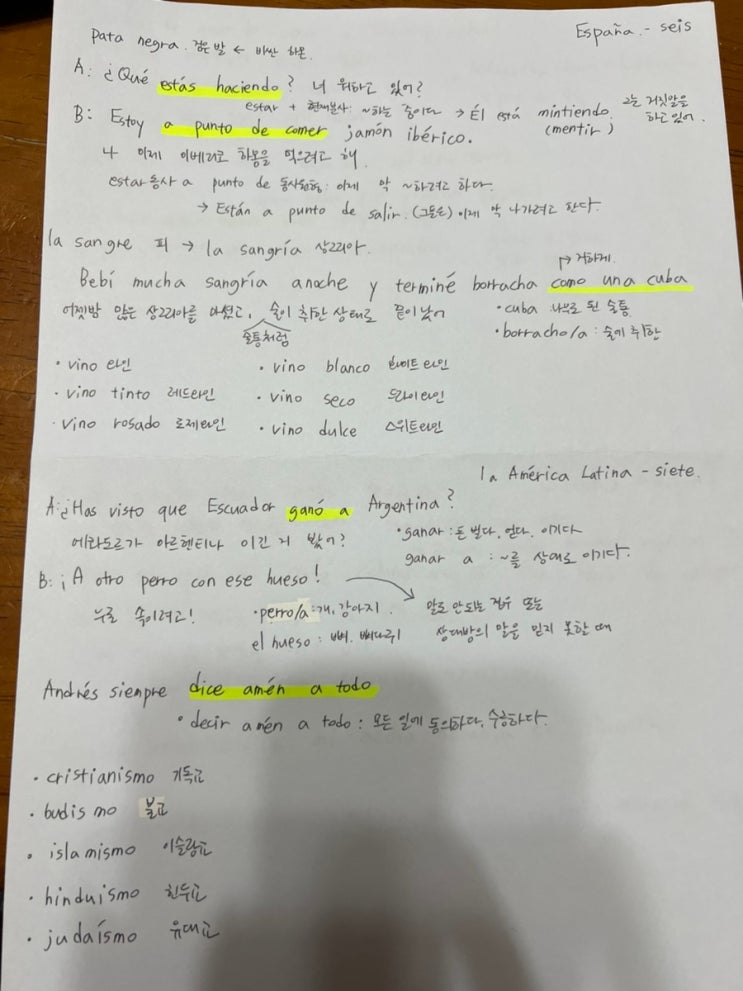 España. - seis
Pata negra. 검은발 ← 비싼 하몬.
A: ¿Qué estás haciendo? 너 뭐하고 있어?
estar + 현재분사: ~하는 중이다 → Él está mintiendo. 그는 거짓말을 하고 있어.
(mentir)
B: Estoy a punto de comer jamón ibérico.
나 이제 이베리코 하몽을 먹으려고 해.
estar동사 a punto de 동사원형: 이제 막 ~하려고 하다.
→ Están a punto de salir. (그들은) 이제 막 나가려고 한다.
la sangre 피 → la sangría 상그리아.
Bebí mucha sangría anoche y terminé borracha como una cuba
→ 거하게.
어젯밤 많은 상그리아를 마셨고, 술이 취한 상태로 끝이 났어
술통처럼
· cuba 나무로 된 술통
· borracho/a : 술에 취한
· vino 와인 · vino blanco 화이트와인
· vino tinto 레드와인 · vino seco 드라이와인
· vino rosado 로제와인 · vino dulce 스위트와인
la América Latina - siete.
A: ¿Has visto que Escuador ganó a Argentina?
에콰도르가 아르헨티나 이긴 거 봤어?
· ganar : 돈 벌다. 얻다. 이기다
ganar a : ~를 상대로 이기다.
B: ¡A otro perro con ese hueso!
누굴 속이려고!
· perro/a : 개, 강아지.
el hueso : 뼈. 뼈다귀
말도 안되는 경우 또는
상대방의 말을 믿지 못할 때
Andrés siempre dice amén a todo
· decir amén a todo : 모든 일에 동의하다, 수긍하다.
· cristianismo 기독교
· budismo 불교
· islamismo 이슬람교
· hinduismo 힌두교
· judaísmo 유대교